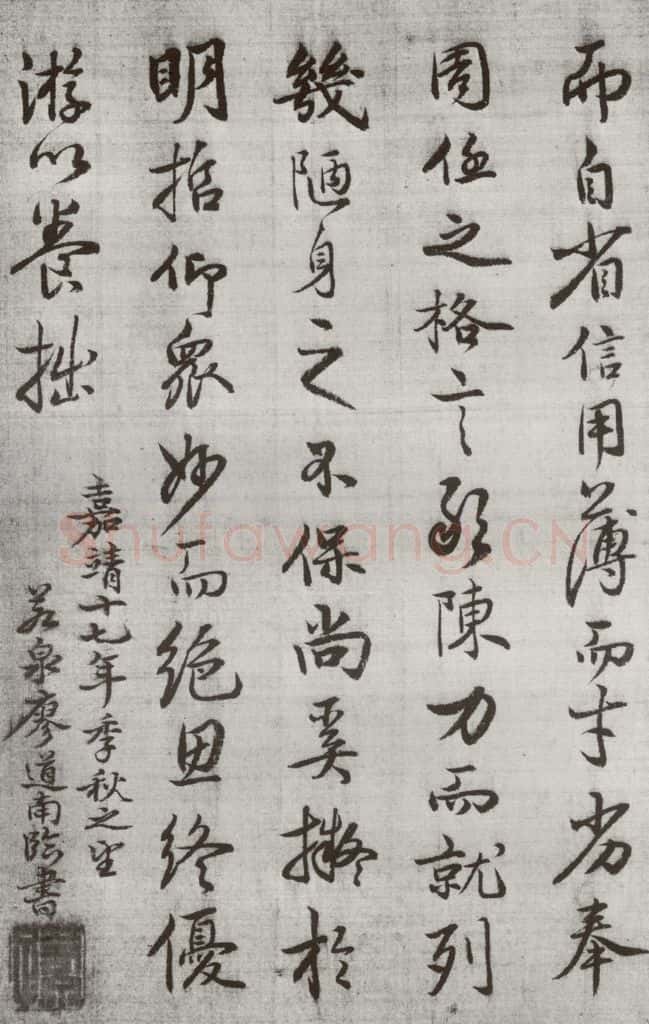 而自省信用薄而才劣奉
周任之格言敢陳力而就列
幾陋身之不保尚奚擬於
明哲仰眾妙而絕思終優
游以養拙
嘉靖十七年季秋之望
若泉廖道南臨書
Shufawang.CN